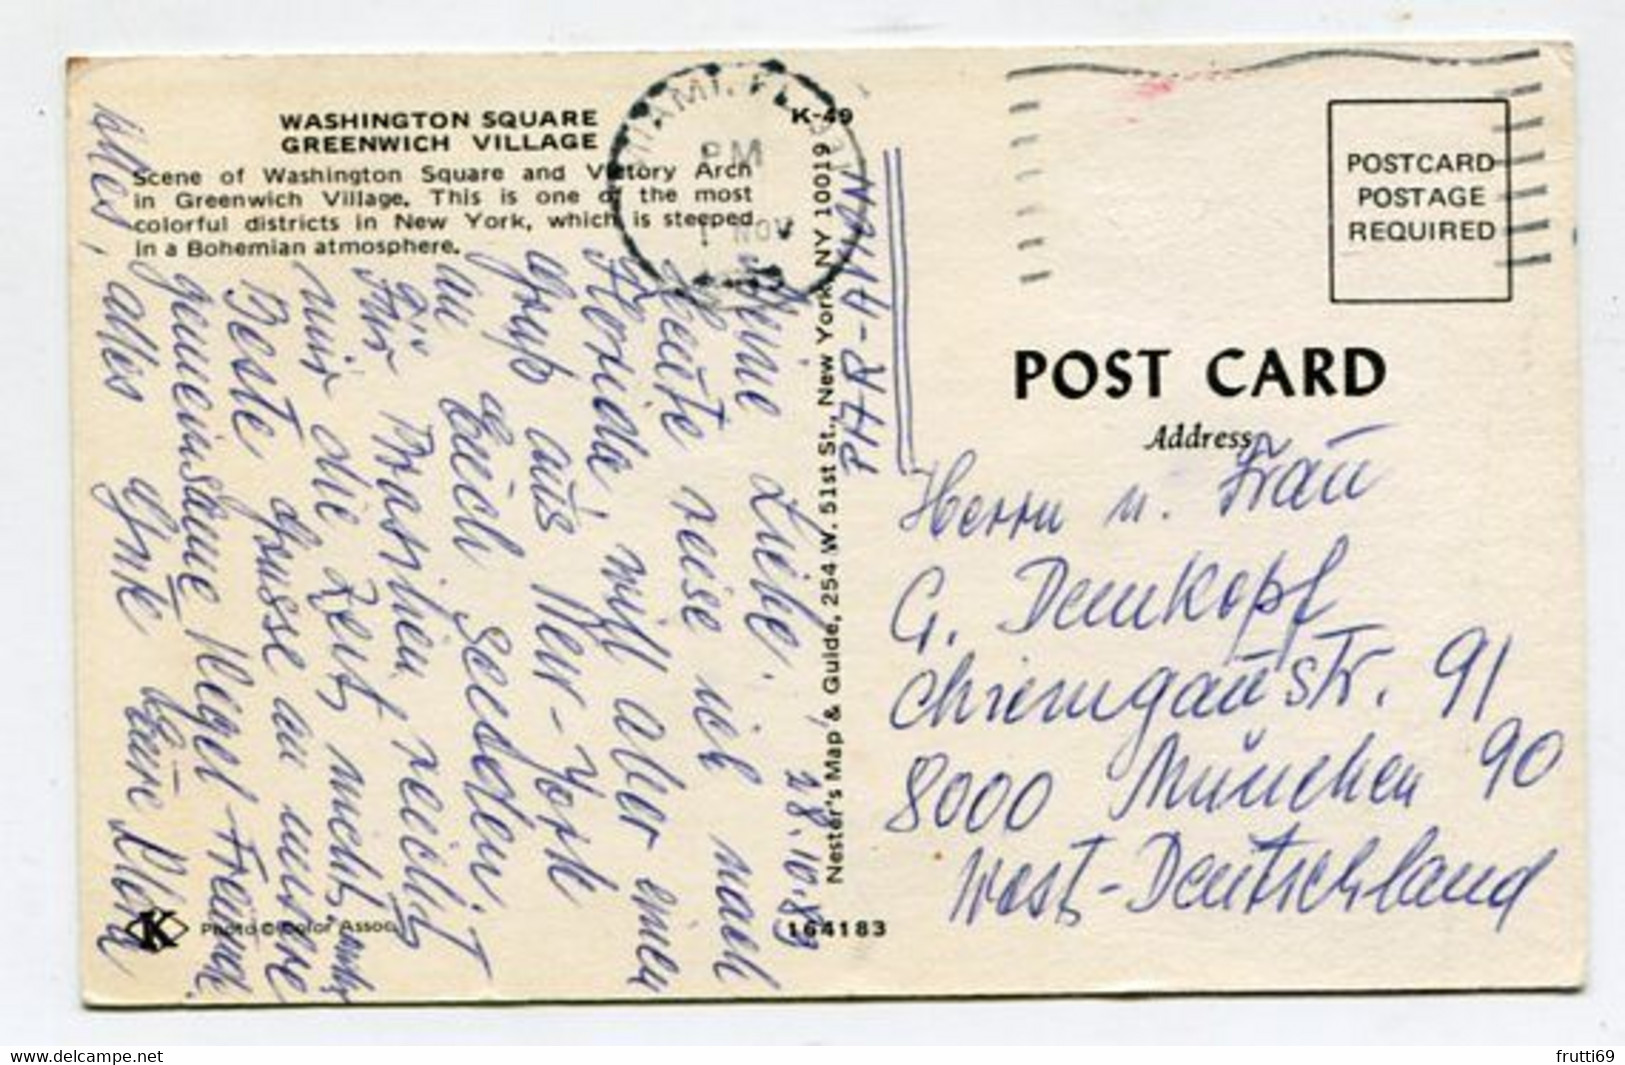 WASHINGTON SQUARE
GREENWICH VILLAGE
Scene of Washington Square and Victory Arch
in Greenwich Village. This is one of the most
colorful districts in New York, which is steeped
in a Bohemian atmosphere.
K-49
MIAMI, FL
PM
1 NOV
28.10.89
Meine Liebe.
Heute reise ich nach
Florida, will aber einen
Gruß aus New-York
an Euch senden.
Für Brasilien reicht
mir die Zeit nicht,
Beste Grüsse an unsere
gemeinsame
alles Gute Eure
Alles,
Photo © Color Assoc.
K
Nester's Map & Guide, 254 W. 51st St., New York, NY 10019
164183
POSTCARD
POSTAGE
REQUIRED
POST CARD
Address
Herrn u. Frau
G. Demkopf
Chiemgaustr. 91
8000 München 90
West-Deutschland
frutti69